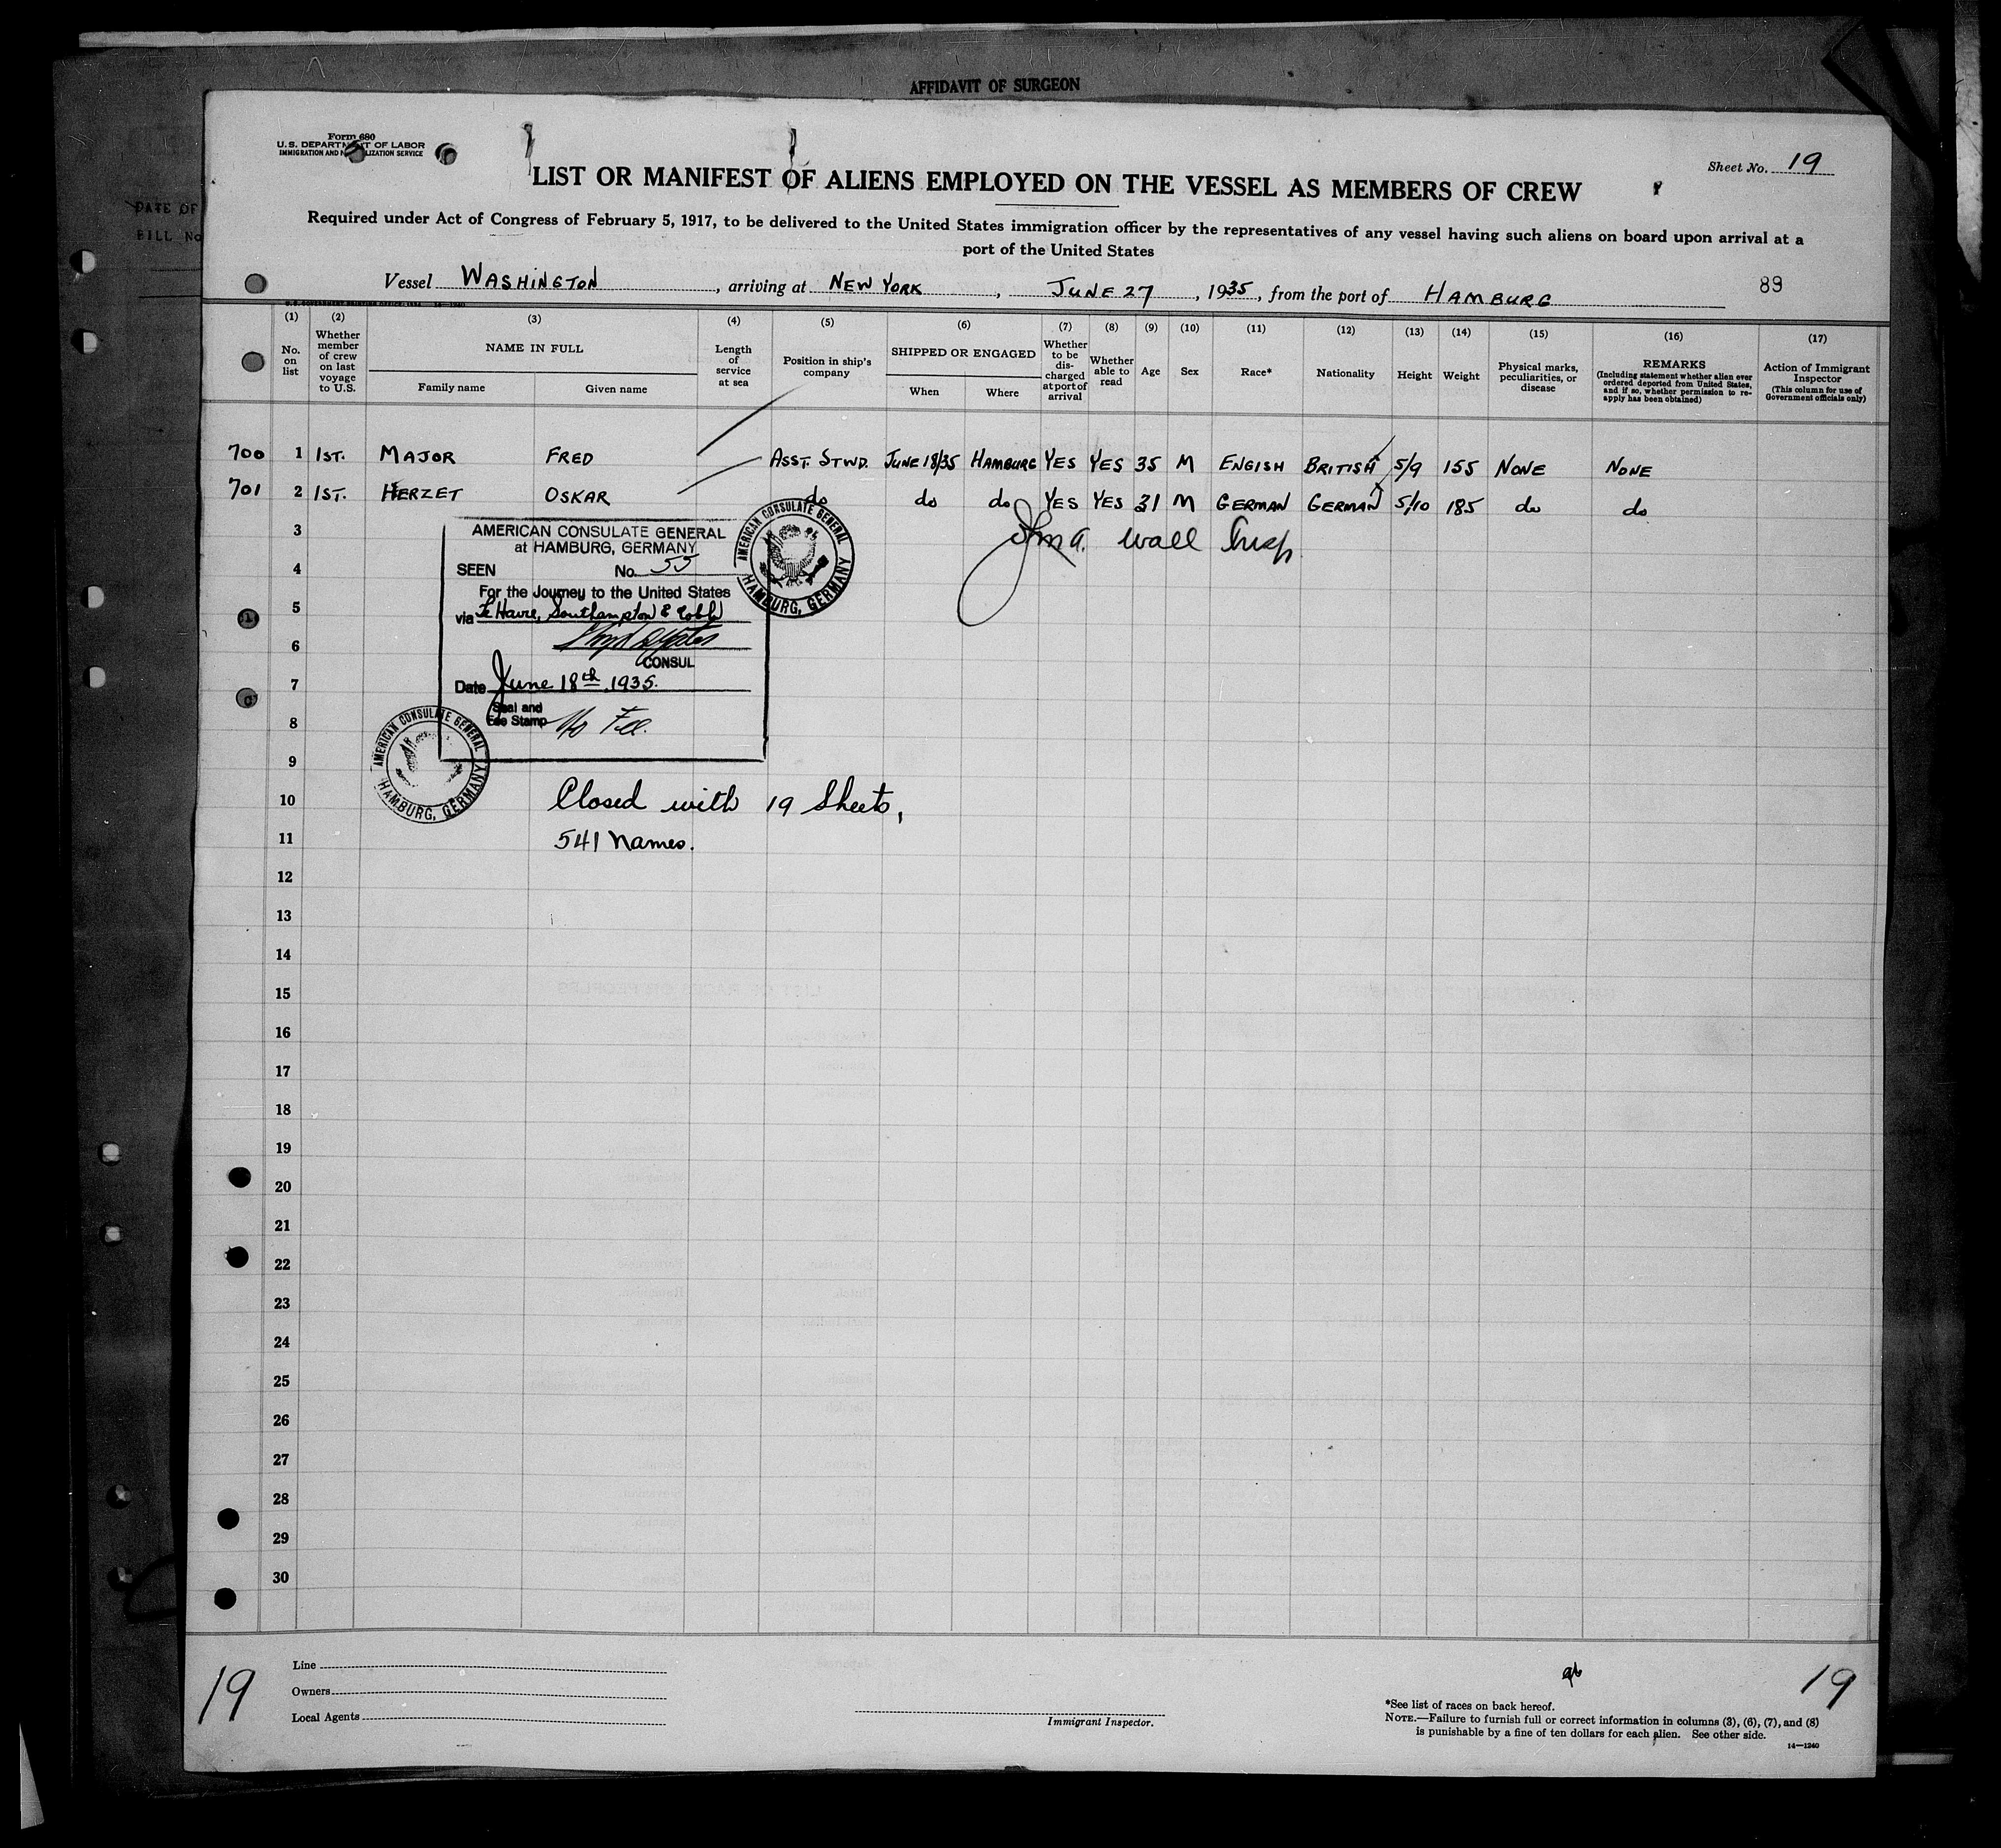 AFFIDAVIT OF SURGEON
DATE OF
BILL No
Form 680
U.S. DEPARTMENT OF LABOR
IMMIGRATION AND NATURALIZATION SERVICE
Sheet No. 19
LIST OR MANIFEST OF ALIENS EMPLOYED ON THE VESSEL AS MEMBERS OF CREW
Required under Act of Congress of February 5, 1917, to be delivered to the United States immigration officer by the representatives of any vessel having such aliens on board upon arrival at a
port of the United States
Vessel WASHINGTON, arriving at NEW YORK, JUNE 27, 1935, from the port of HAMBURG
89
(1) No. on list
(2) Whether member of crew on last voyage to U.S.
(3) NAME IN FULL
Family name
Given name
(4) Length of service at sea
(5) Position in ship's company
(6) SHIPPED OR ENGAGED
When
Where
(7) Whether to be discharged at port of arrival
(8) Whether able to read
(9) Age
(10) Sex
(11) Race*
(12) Nationality
(13) Height
(14) Weight
(15) Physical marks, peculiarities, or disease
(16) REMARKS (Including statement whether alien ever ordered deported from United States, and if so, whether permission to re-apply has been obtained)
(17) Action of Immigrant Inspector (This column for use of Government officials only)
700 1 1ST. MAJOR FRED ASST. STWD. JUNE 18/35 HAMBURG YES YES 35 M ENGISH BRITISH 5/9 155 NONE NONE
701 2 1ST. HERZET OSKAR do do do YES YES 31 M GERMAN GERMAN 5/10 185 do do
3
4
5
6
7
8
9
10
11
12
13
14
15
16
17
18
19
20
21
22
23
24
25
26
27
28
29
30
AMERICAN CONSULATE GENERAL
at HAMBURG, GERMANY
SEEN No. 55
For the Journey to the United States
via Le Havre, Southampton & Cobh
CONSUL
Date June 18th, 1935.
Seal and
Fee Stamp No Fee.
AMERICAN CONSULATE GENERAL
HAMBURG, GERMANY
AMERICAN CONSULATE GENERAL
HAMBURG, GERMANY
Wall Insp
Closed with 19 Sheets,
541 names.
19
Line
Owners
Local Agents
Immigrant Inspector.
19
*See list of races on back hereof.
NOTE.—Failure to furnish full or correct information in columns (3), (6), (7), and (8)
is punishable by a fine of ten dollars for each alien. See other side.
14—1240